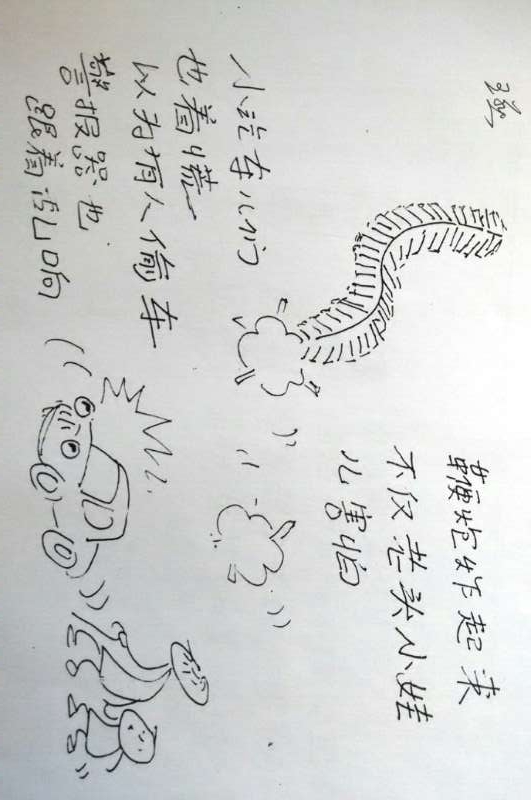 鞭炮炸起来
不仅老头小娃
儿害怕
小汽车儿们
也着慌
以为有人偷车
警报器也
跟着乱响